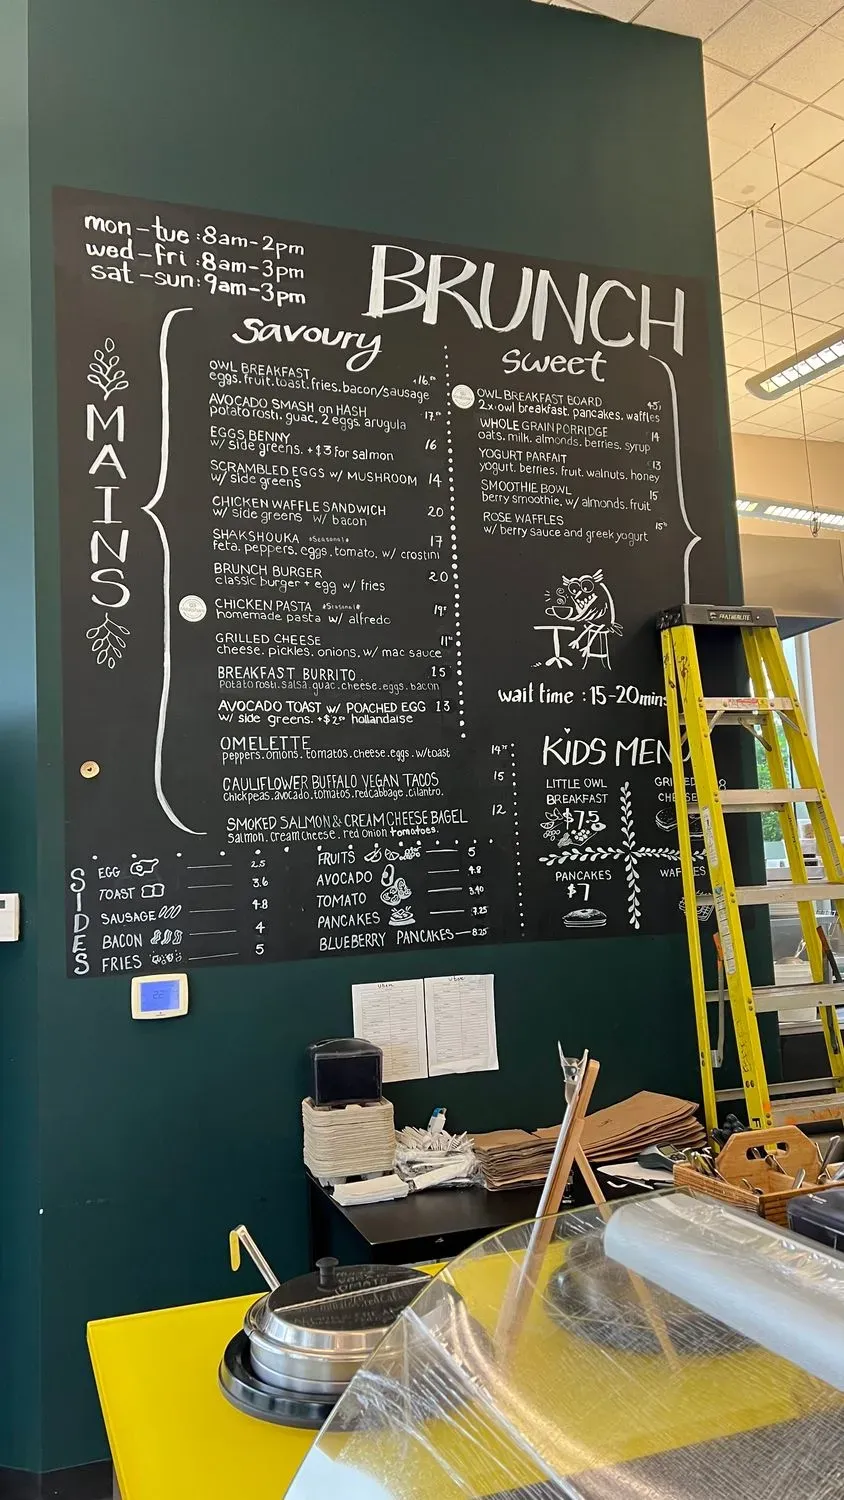 mon-tue: 8am-2pm
wed-fri: 8am-3pm
sat-sun: 9am-3pm
BRUNCH
MAINS
Savoury
OWL BREAKFAST
eggs. fruit. toast. fries. bacon/sausage
AVOCADO SMASH on HASH
potato rosti. guac. 2 eggs. arugula
EGGS BENNY 16
w/ side greens. +$3 for salmon
SCRAMBLED EGGS w/ MUSHROOM 14
w/ side greens
CHICKEN WAFFLE SANDWICH 20
w/ side greens w/ bacon
SHAKSHOUKA *Seasonal* 17
feta. peppers. eggs. tomato. w/ crostini
BRUNCH BURGER 20
classic burger + egg w/ fries
CHICKEN PASTA *Seasonal*
homemade pasta w/ alfredo
GRILLED CHEESE
cheese. pickles. onions. w/ mac sauce
BREAKFAST BURRITO 15
potato rosti. salsa. guac. cheese. eggs. bacon
AVOCADO TOAST w/ POACHED EGG 13
w/ side greens. hollandaise
OMELETTE
peppers. onions. tomatos. cheese. eggs. w/toast
CAULIFLOWER BUFFALO VEGAN TACOS 15
chickpeas. avocado. tomatos. red cabbage. cilantro.
SMOKED SALMON & CREAM CHEESE BAGEL 12
salmon. cream cheese. red onion tomatoes.
sweet
OWL BREAKFAST BOARD 45
2x owl breakfast. pancakes. waffles
WHOLE GRAIN PORRIDGE 14
oats. milk. almonds. berries. syrup
YOGURT PARFAIT 13
yogurt. berries. fruit. walnuts. honey
SMOOTHIE BOWL 15
berry smoothie. w/ almonds. fruit
ROSE WAFFLES
w/ berry sauce and greek yogurt
wait time : 15-20mins
KIDS MEN
LITTLE OWL
BREAKFAST
$7.5
PANCAKES
$7
SIDES
EGG 2.5
TOAST 3.6
SAUSAGE 4.8
BACON 4
FRIES 5
FRUITS 5
AVOCADO 4.8
TOMATO 3.40
PANCAKES 7.25
BLUEBERRY PANCAKES 8.25
FEATHERLITE